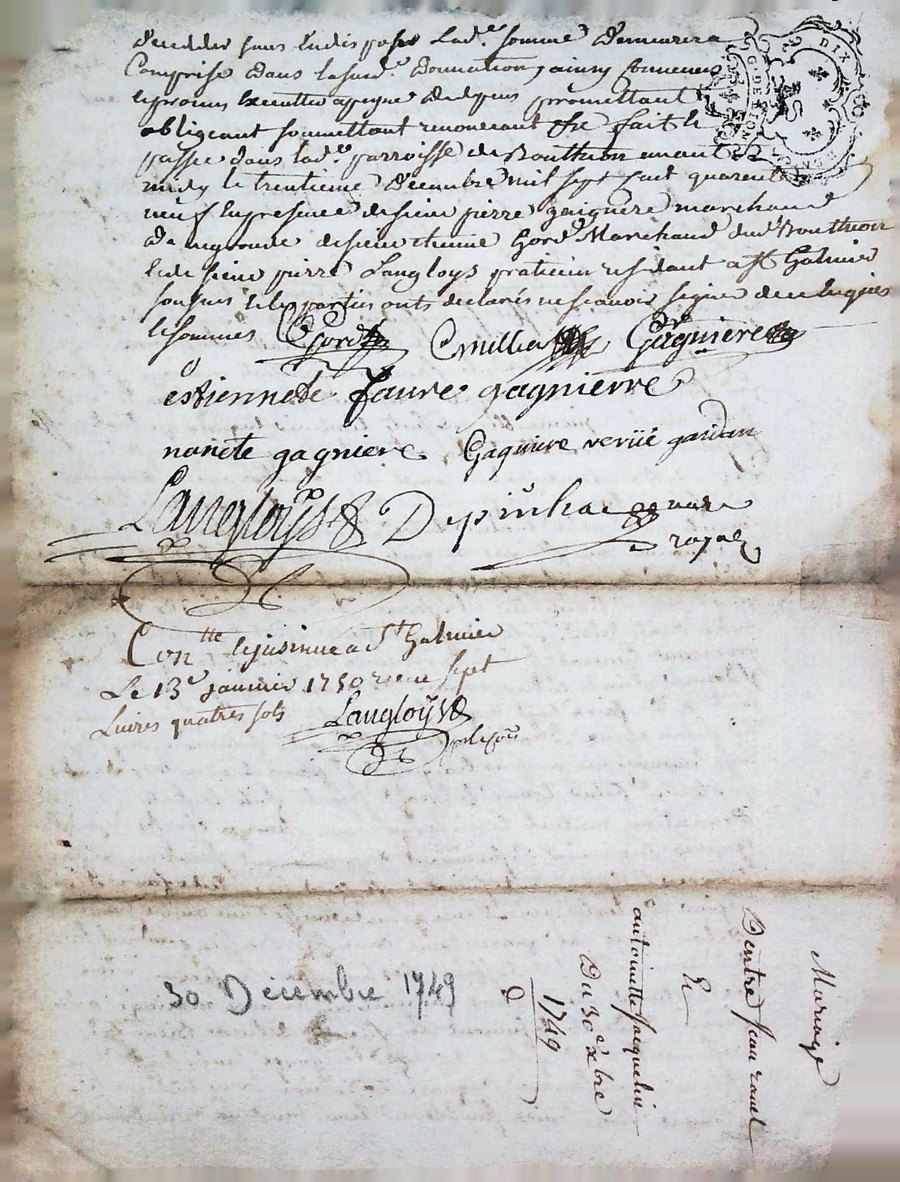 decedder sans en dispozer lad.e somme demeurera
comprise dans lasusd.e donnation, ainsy convenus
promis executter a peyne dedepens promettant
obligeant soumettant renonceant &re fait &
passé dans lad.e parroisse de Boutheon avant
midy le trentieme decembre mil sept cent quarente
neuf en presence de sieur pierre gaigniere marchand
de sieur etienne Gord Marchand dud. Boutheon
& de sieur pierre Langloys praticien residant a St Galmier
soussignés & les parties ont declarés ne scavoir signer de ce enquis
& sommés Gord Gagniere
estiennete faure gagnierre
nanete gagniere Gagniere
Langloys Depinhac nore
royal
Con.lle & insinué a St Galmier
Le 13e janvier 1750 receu sept
Livres quatre sols Langloys
30 Decembre 1749
Mariage
Dentre Jean
Et
antoinette Jacquelin
Du 30e xbre
1749
DIX
G. DE LION